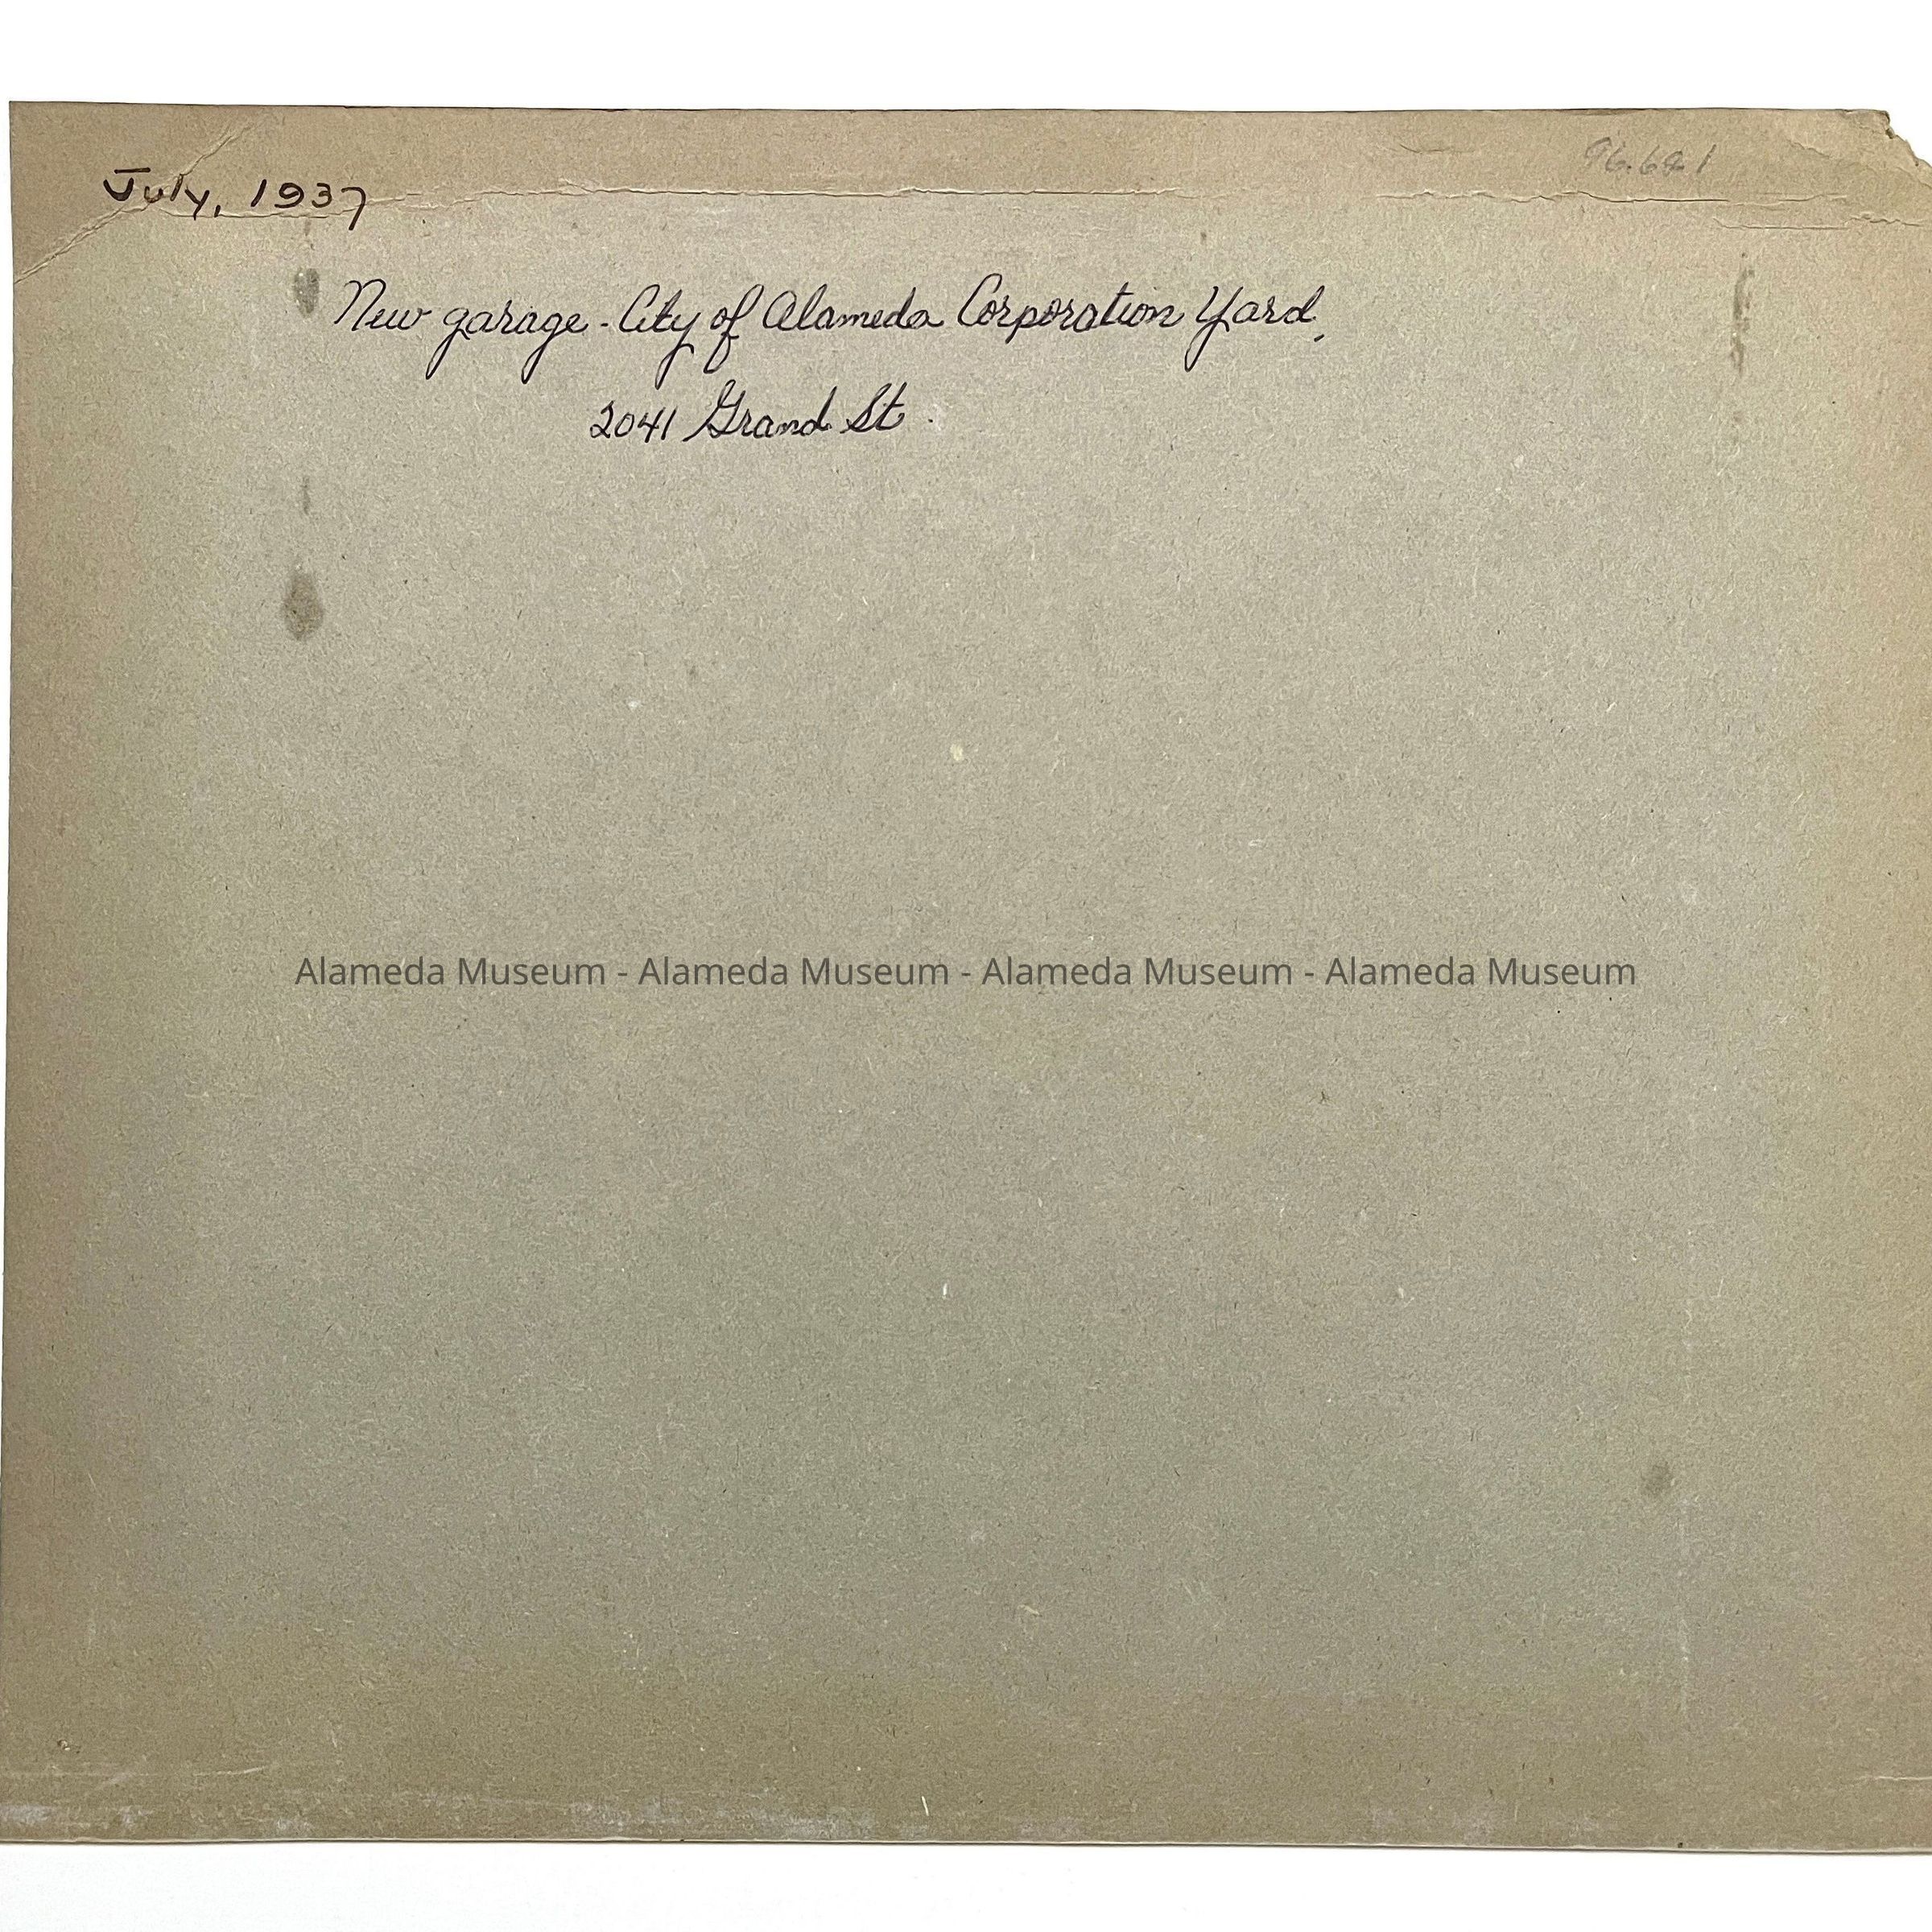 July, 1937
96.69.1
New garage - City of Alameda Corporation Yard,
2041 Grand St.
Alameda Museum - Alameda Museum - Alameda Museum - Alameda Museum